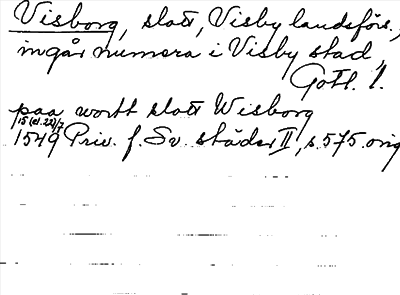 Visborg, slott, Visby landsförs.,
ingår numera i Visby stad,
Gotl. l.
paa wortt slott Wisborg
15 (el. 22)/7
1549 Priv. f. Sv. städer II, s. 575. orig